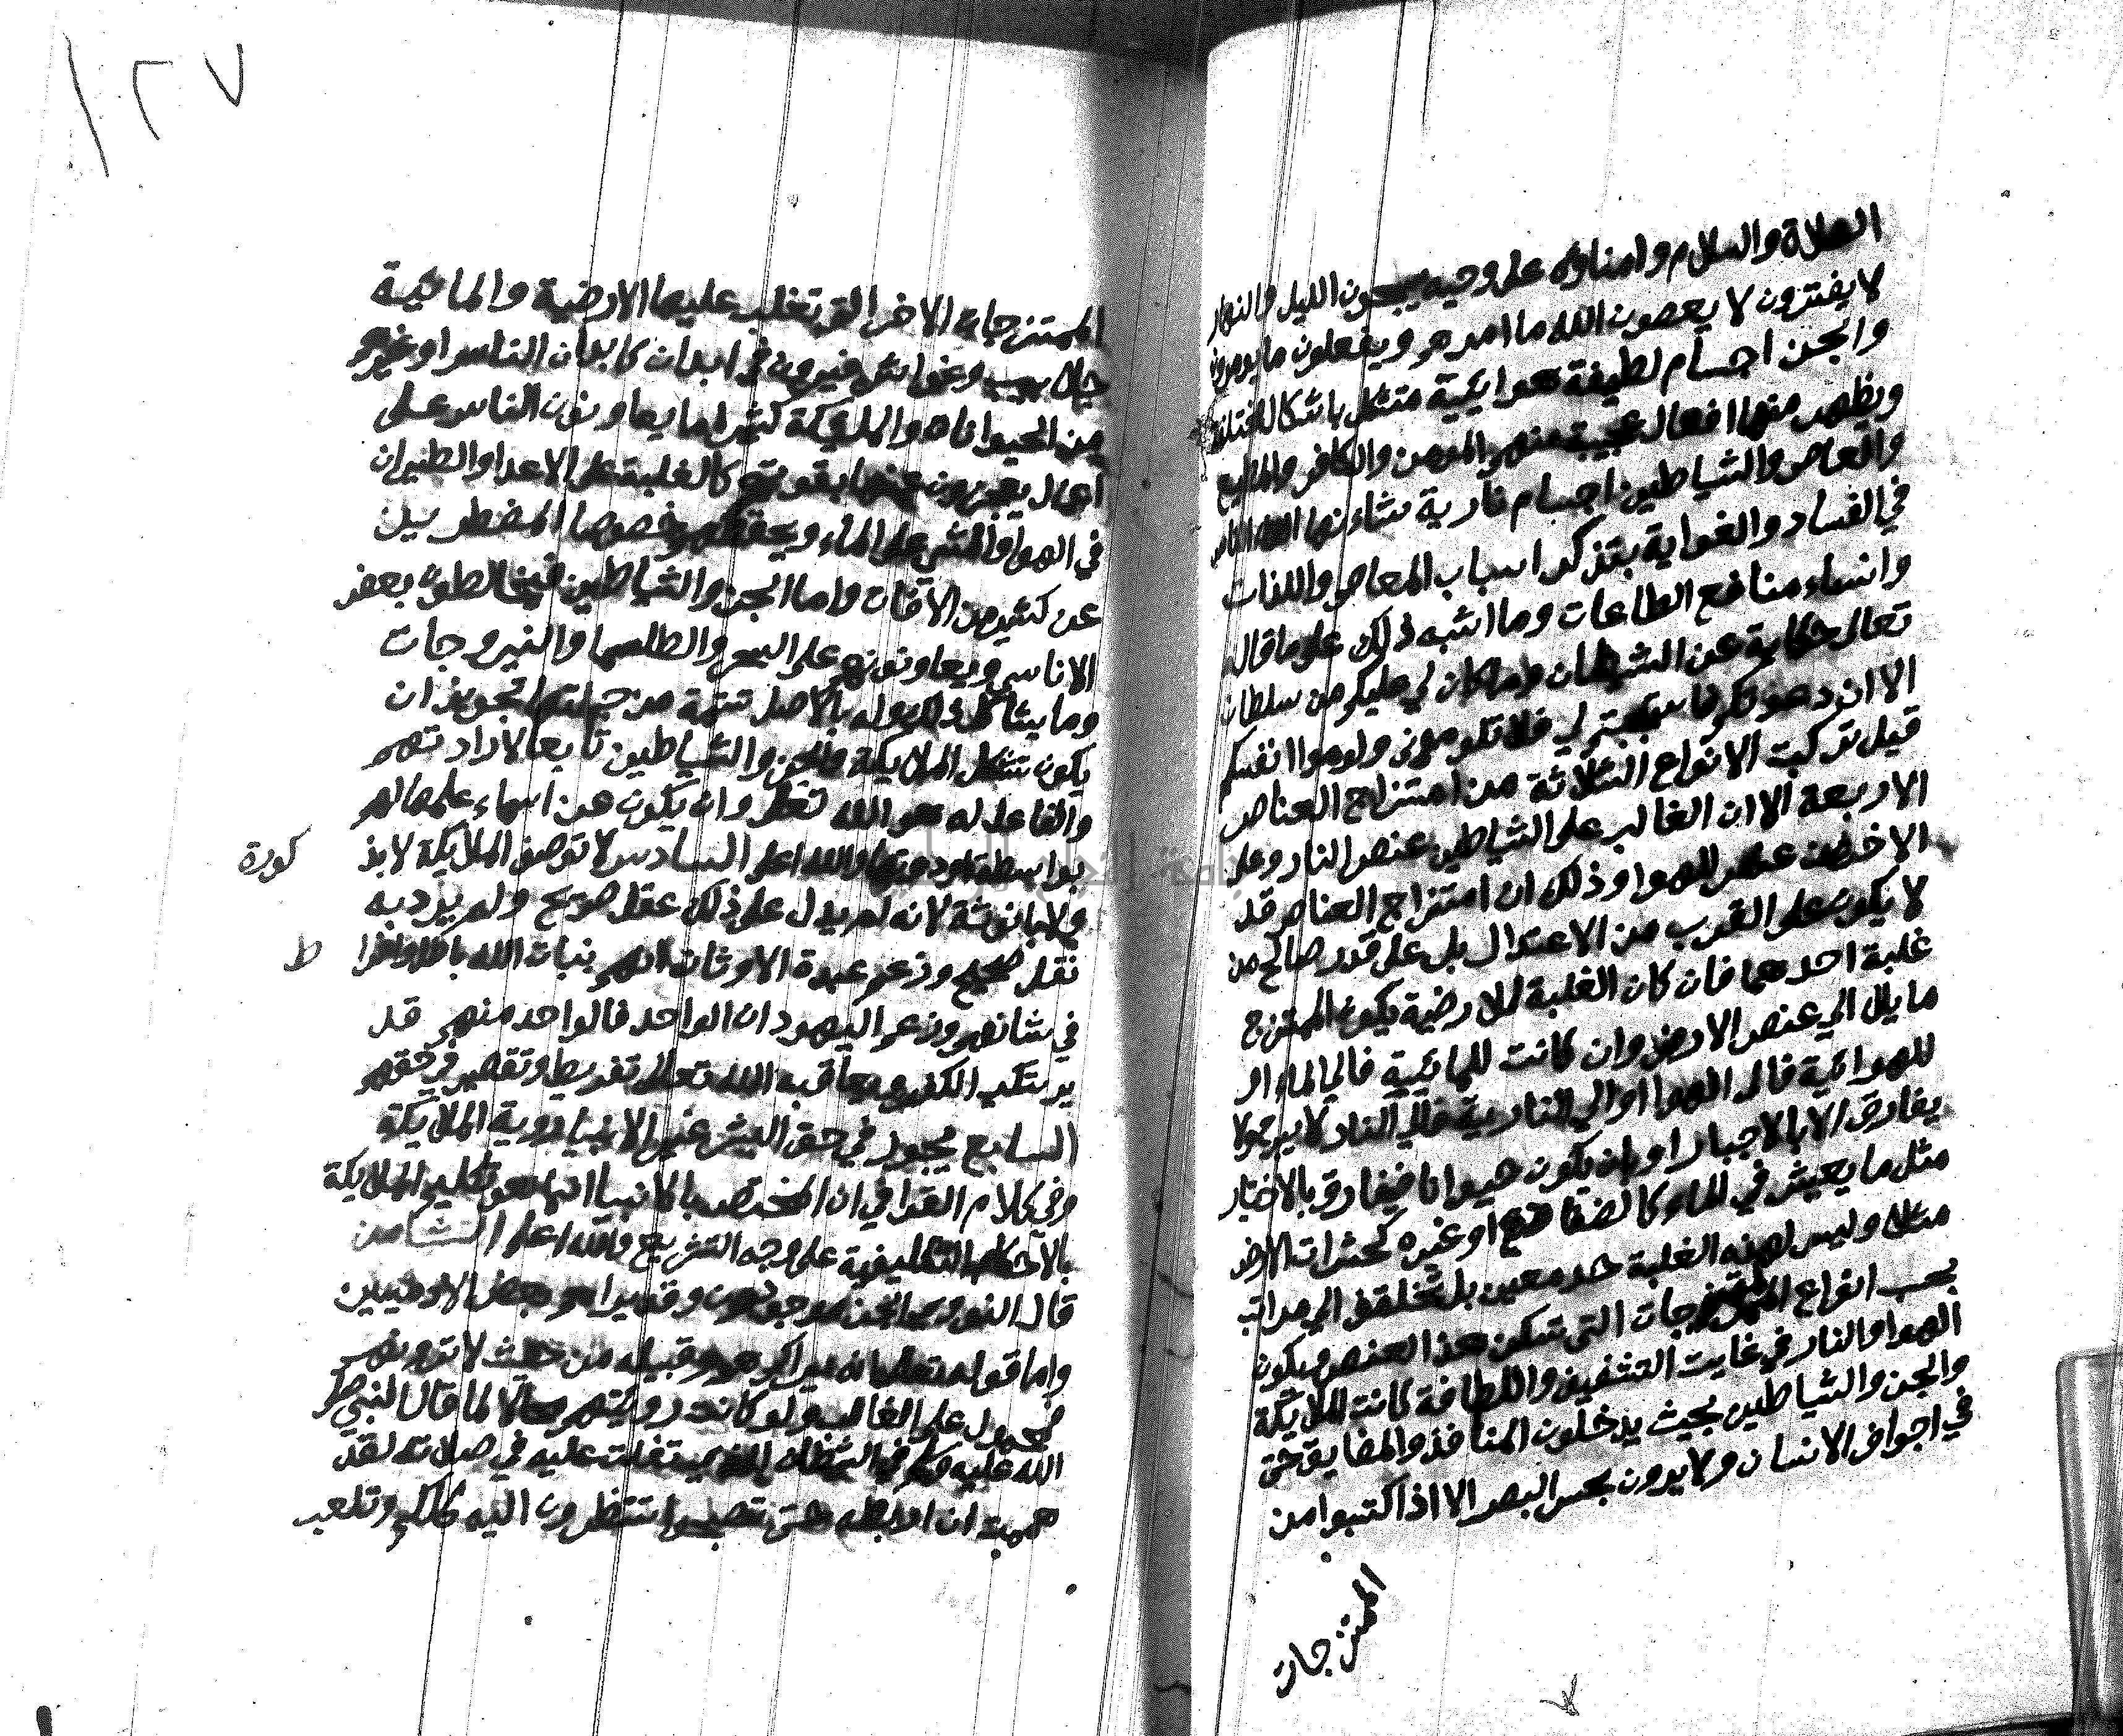 الصلاة والسلام وامناؤه على وحيه يسبحون الليل والنهار
لا يفترون لا يعصون الله ما امرهم ويفعلون ما يومرون
والجن اجسام لطيفة هوائية متشكل باشكال مختلفة
ويظهر منها افعال عجيبة منهم المومن والكافر والمطيع
والعاصي والشياطين اجسام نارية شانها القاء الناس
في الفساد والغواية بتذكر اسباب المعاصي واللذات
وانساء منافع الطاعات وما اشبه ذلك على ما قال
تعالى حكاية عن الشيطان وما كان لي عليكم من سلطان
الا ان دعوتكم فاستجبتم لي فلا تلوموني ولوموا انفسكم
قيل تركبت الانواع الثلاثة من امتزاج العناصر
الاربعة الا ان الغالب على الشياطين عنصر النار وعلى
الاخرين عنصر الهوا وذلك ان امتزاج العناصر قد
لا يكون على القرب من الاعتدال بل على قدر صالح من
غلبة احدهما فان كان الغلبة للارضية يكون الممتزج
مايلا الى عنصر الارض وان كانت للمائية فالى الماء او
للهوائية فالى الهوا او الى النارية فالى النار لا يبرح ولا
يفارق الا بالاجبار او بان يكون حيوانا فيفارق بالاختيار
مثل ما يعيش في الماء كالضفادع او غيره كحشرات الارض
مثلا وليس لهذه الغلبة حد معين بل تختلف الى مراتب
بحسب انواع الممتزجات التي تسكن هذا العنصر ويكون
الهوا والنار في غايت التشفيف واللطافة كانت الملائكة
والجن والشياطين بحيث يدخلون المنافذ والمضايق حتى
في اجواف الانسان ولا يرون بحس البصر الا اذا اكتسبوا من
الممتزجات
١٢٧
الممتزجات الاخر التي تغلب عليها الارضية والمائية
جلابيب وغواشي فيرون في ابدان كابدان الناس او غيرهم
من الحيوانات والملائكة كثيرا ما يعاونون الناس على
اعمال يعجزون عنها بقوتهم كالغلبة على الاعدا والطيران
في الهوا والمشي على الماء ويحفظهم خصوصا المضطرين
عن كثير من الآفات واما الجن والشياطين فيخالطون بعض
الاناسي ويعاونونهم على السحر والطلسما والنيروجات
وما يشاكل ذلك وله بالاصل تتمة من جملتها تجويز ان
يكون تشكل الملايكة والجن والشياطين تابعا لارادتهم
والفاعل له هو الله تعالى وان يكون عن اسماء علمها لهم
بواسطة او دونها والله اعلم السادس لا توصف الملايكة لا بذ
كورة
ولا بانوثة لانه لم يدل على ذلك عقل صريح ولم يرد به
نقل صحيح وزعم عبدة الاوثان انهم بنات الله باطل وافرا
ط
في شانهم وزعم اليهود ان الواحد فالواحد منهم قد
يرتكب الكفر ويعاقبه الله تعالى تفريط وتقصير في حقهم
السابع يجوز في حق البشر غير الانبيا روية الملايكة
وفي كلام القرافي ان المختص بالانبيا انما هو تكليم الملايكة
بالاحكام التكليفية على وجه التشريع والله اعلم الثامن
قال النووي الجن موجودون وقد يراهم بعض الادميين
واما قوله تعالى انه يراكم هو وقبيله من حيث لا ترونهم
محمول على الغالب ولو كانت رؤيتهم محالا لما قال النبي صلى
الله عليه وسلم في الشيطان الذي تفلت عليه في صلاته لقد
هممت ان اربطه حتى تصبحوا تنظرون اليه كلكم وتلعب